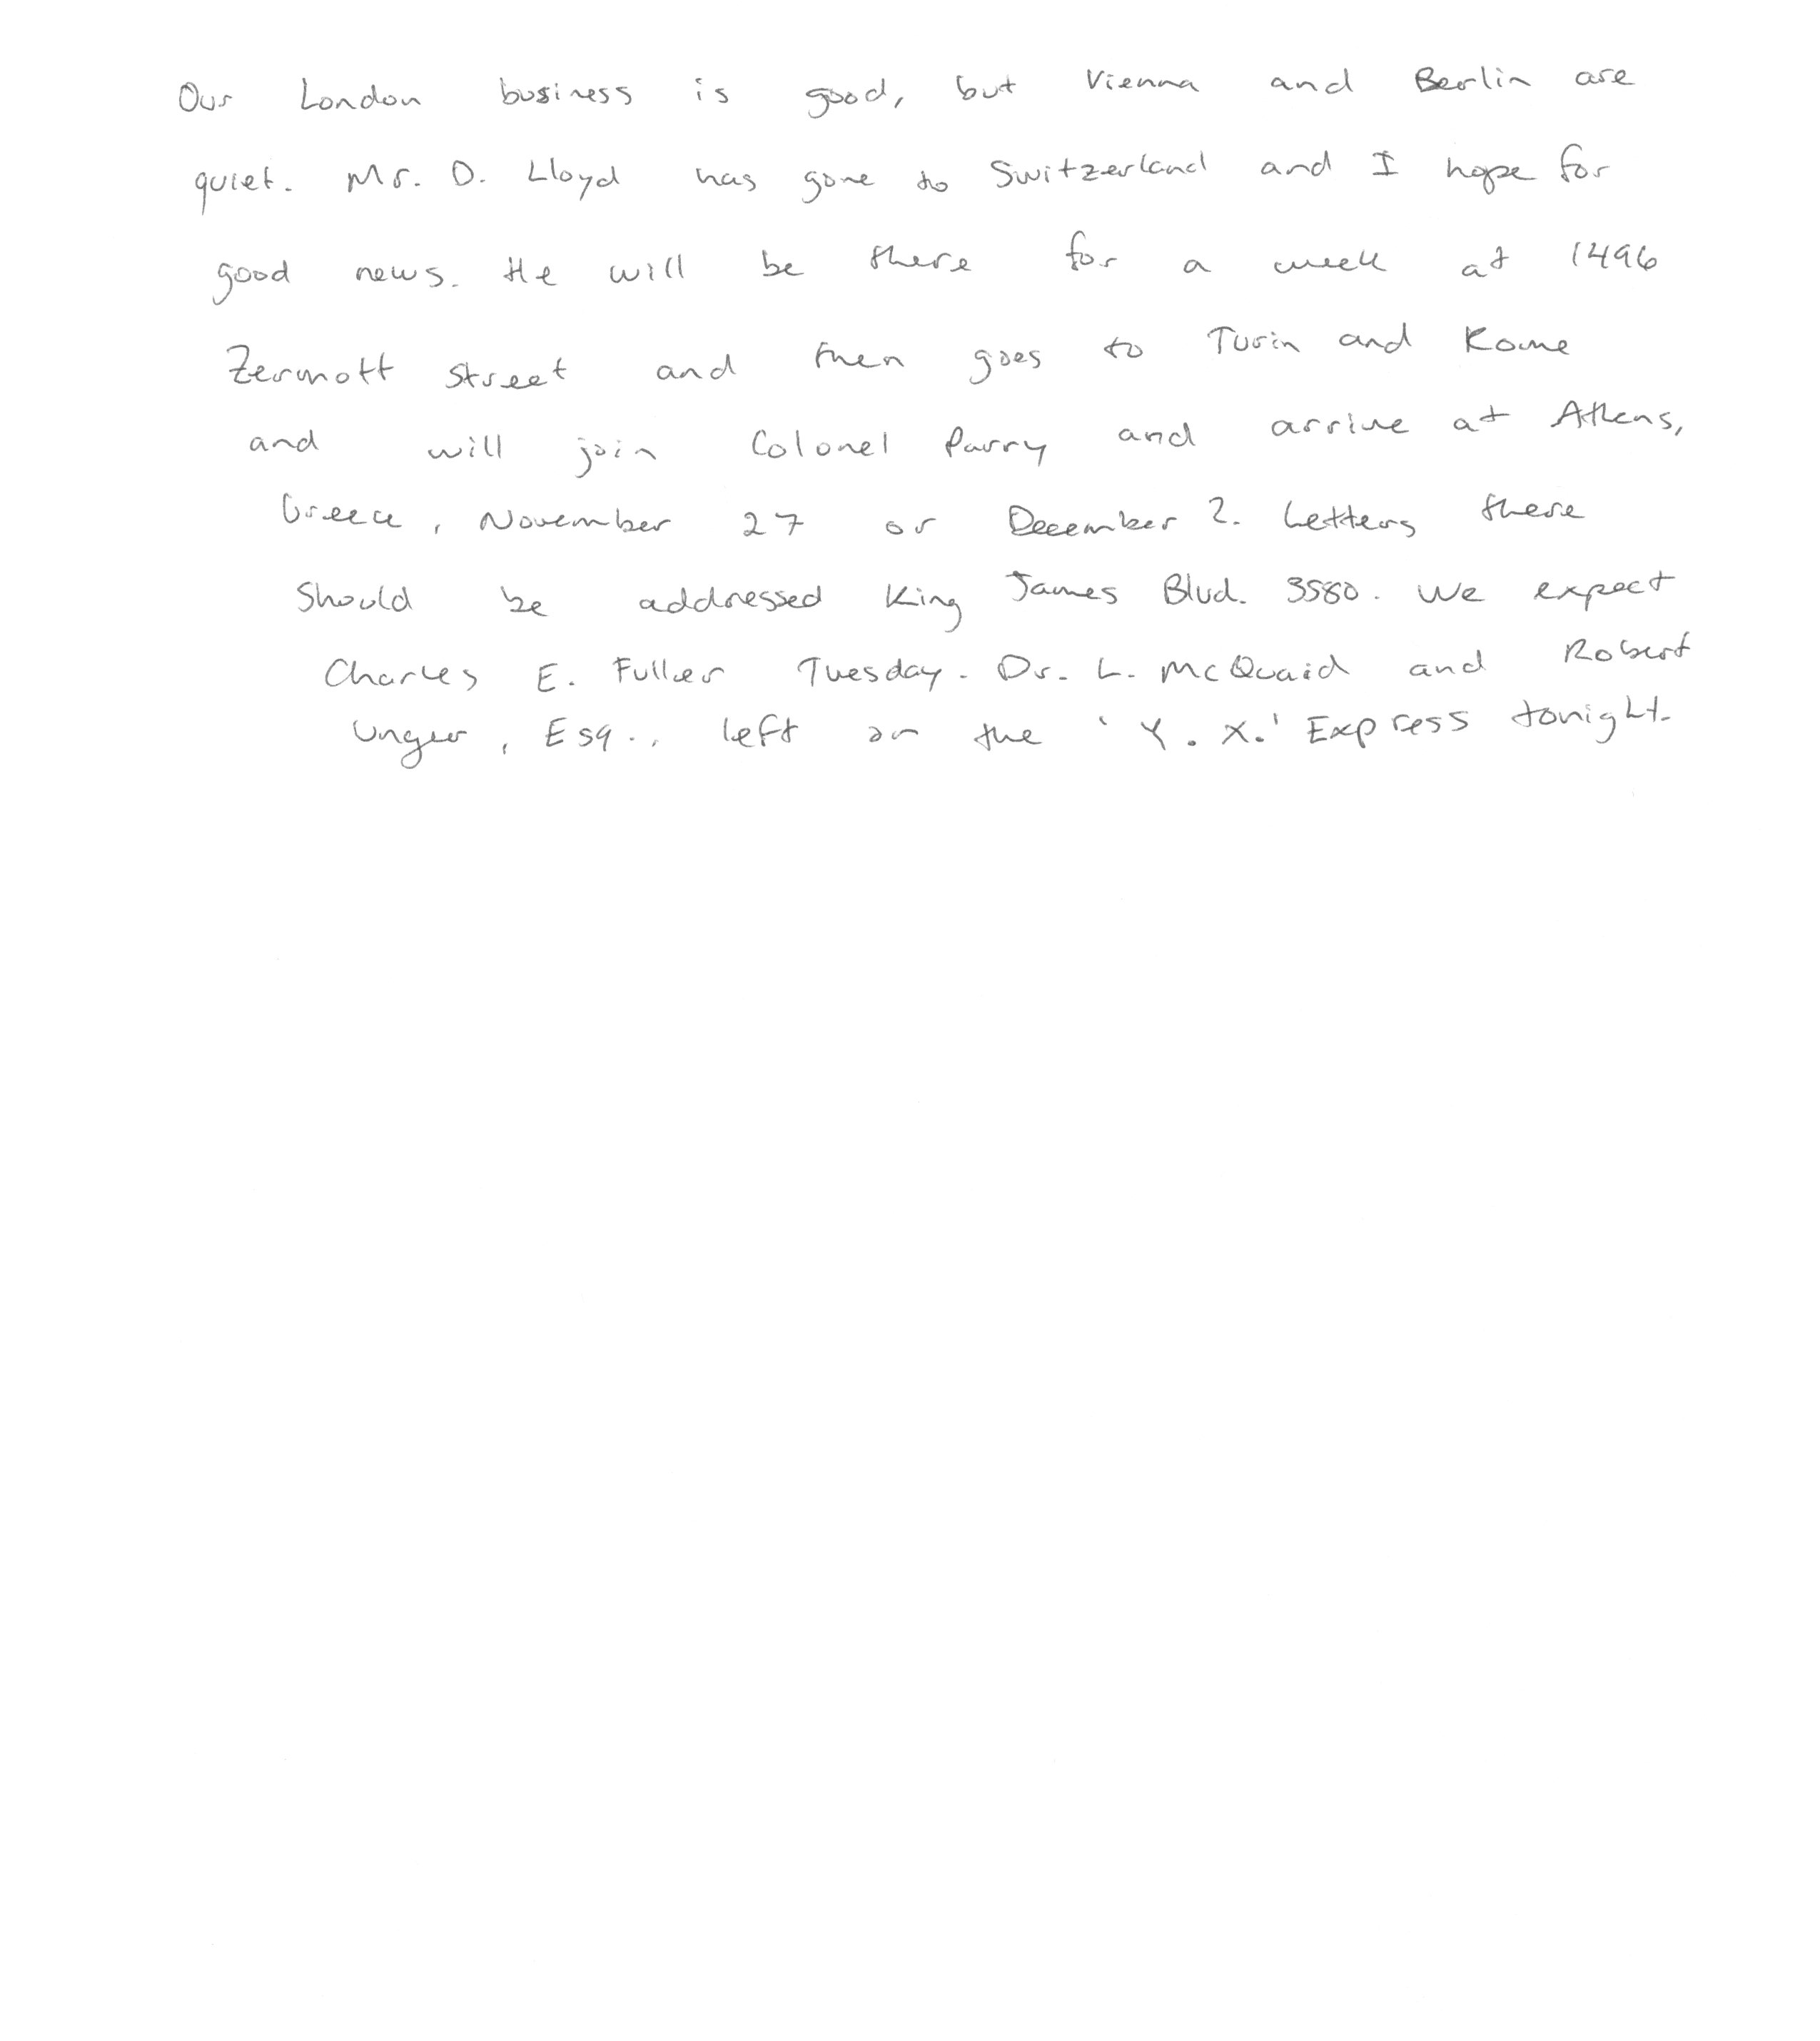 Our London business is good, but Vienna and Berlin are
quiet. Mr. D. Lloyd has gone to Switzerland and I hope for
good news. He will be there for a week at 1496
Zermott Street and then goes to Turin and Rome
and will join Colonel Parry and arrive at Athens,
Greece, November 27 or December 2. Letters there
should be addressed King James Blvd. 3580. We expect
Charles E. Fuller Tuesday. Dr. L. McQuaid and Robert
Unger, Esq., left on the 'Y. X.' Express tonight.